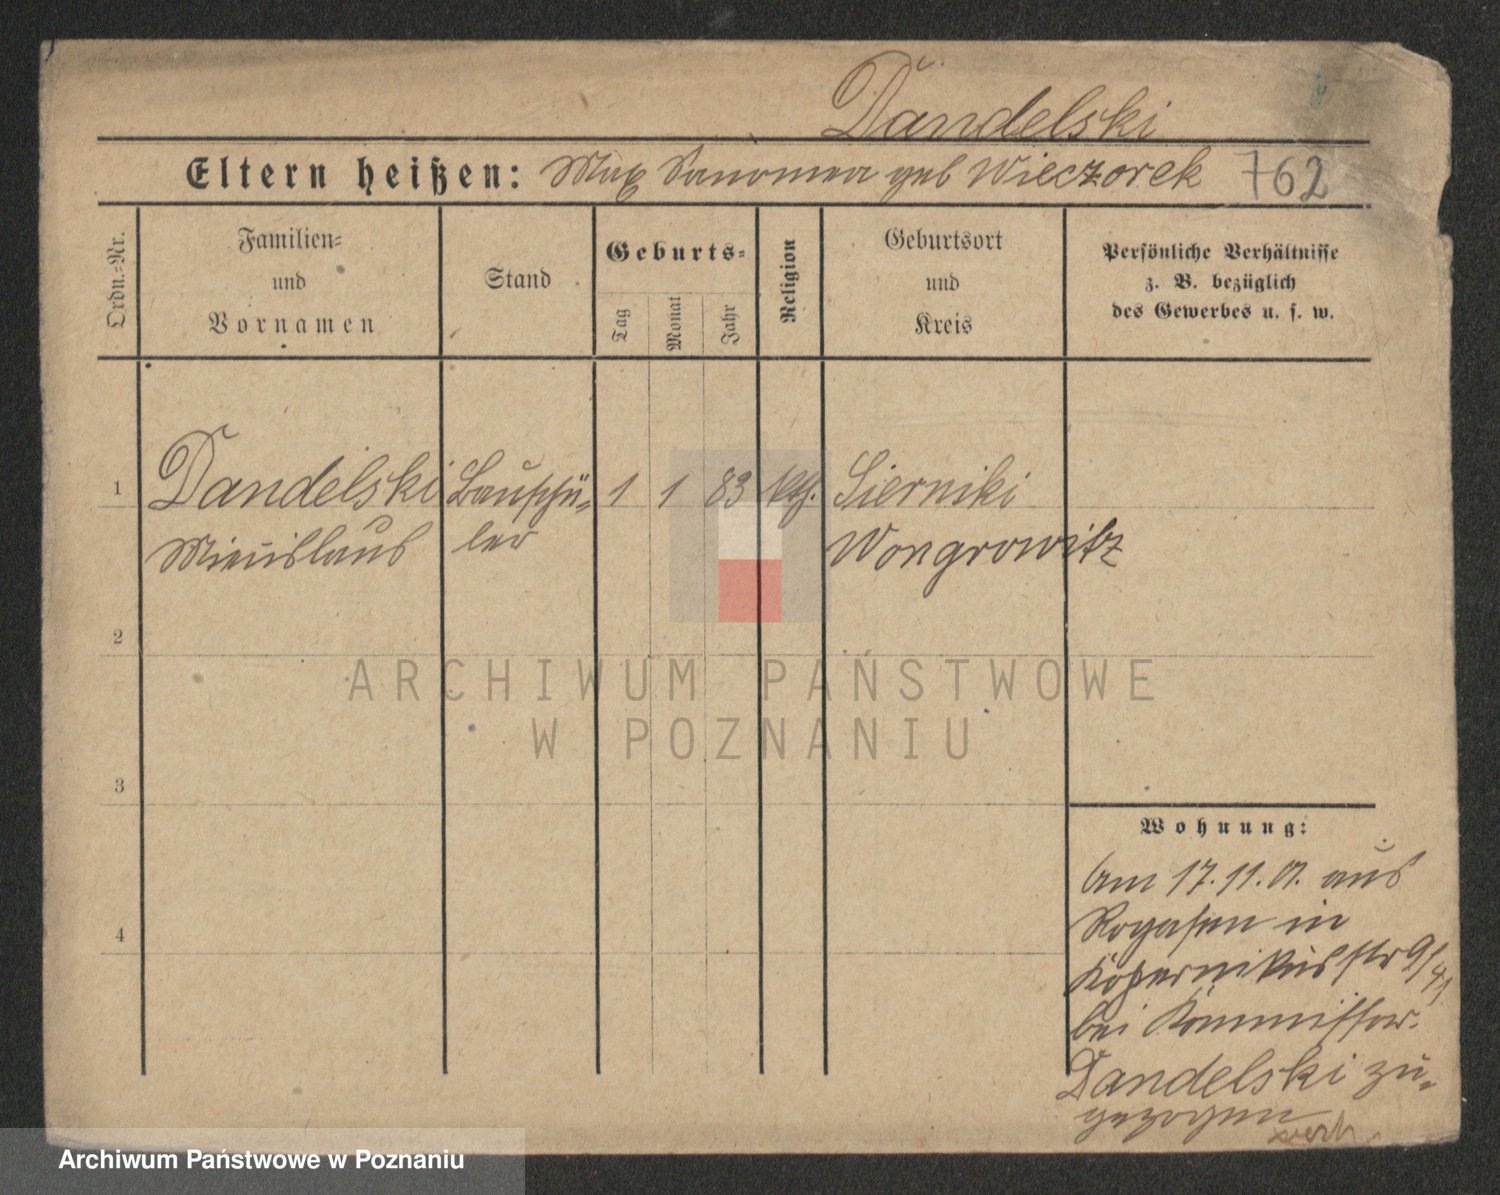 Dandelski
Eltern heißen: Max geb Wieczorek 762
Ordn.-Nr.
Familien-
und
Vornamen
Stand
Geburts-
Tag
Monat
Jahr
Religion
Geburtsort
und
Kreis
Persönliche Verhältnisse
z. B. bezüglich
des Gewerbes u. s. w.
1 Dandelski Bauschü- 1 1 83 kth. Sierniki
Mieczislaus ler Wongrowitz
2
3
4
ARCHIWUM PAŃSTWOWE
W POZNANIU
Wohnung:
Am 17.11.01. aus
Rogasen in
Kopernikusstr 9/
bei Kommissar.
Dandelski zu-
gezogen
Archiwum Państwowe w Poznaniu